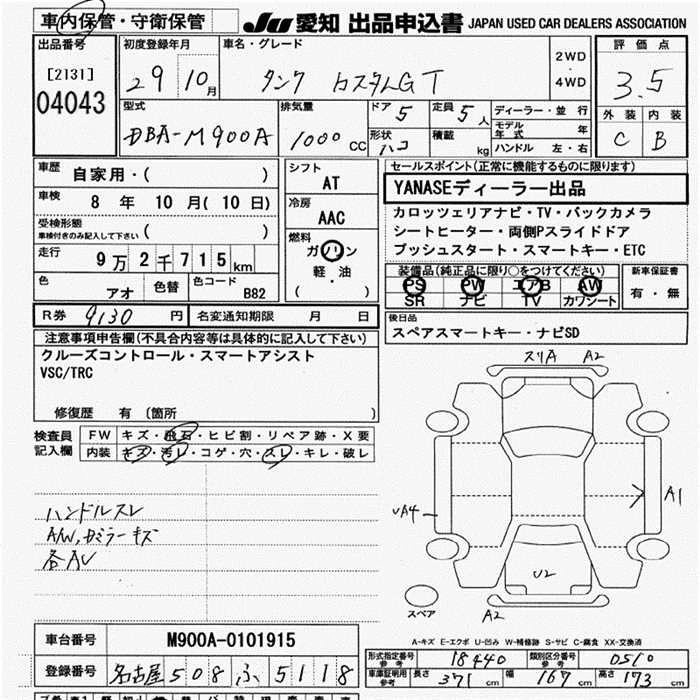 車内保管・守衛保管
JU 愛知 出品申込書 JAPAN USED CAR DEALERS ASSOCIATION
出品番号 初度登録年月 車名・グレード 評価点
[2131] 29 10月 タンク カスタムGT 2WD・4WD 3.5
04043
型式 排気量 ドア 5 定員 5人 ディーラー・並行 外装 内装
DBA-M900A 1000cc 形状 ハコ 積載 kg モデル年式 年 C B
ハンドル 左・右
車歴 自家用・( ) シフト AT セールスポイント(正常に機能するものに限ります)
YANASEディーラー出品
車検 8年 10月(10日) 冷房 AAC カロッツェリアナビ・TV・バックカメラ
受検形態 車検付きのみ記入して下さい ( ) シートヒーター・両側Pスライドドア
走行 9万2千715km 燃料 ガソリン 軽・油 ( ) プッシュスタート・スマートキー・ETC
装備品(純正品に限り○をつけてください) 新車保証書
PS PW エアB AW 有・無
SR ナビ TV カワシート
色 アオ 色替 色コード B82
R券 9130円 名変通知期限 月 日 後日品
スペアスマートキー・ナビSD
注意事項申告欄(不具合内容等は具体的に記入して下さい)
クルーズコントロール・スマートアシスト
VSC/TRC
修復歴 有 〔箇所 〕
スリA A2
検査員記入欄 FW キズ・飛石・ヒビ割・リペア跡・X要
内装 キズ・汚レ・コゲ・穴・スレ・キレ・破レ
ハンドルスレ
A/W,ドアミラーキズ
各AU
A1
UA4
U2
スペア A2
A-キズ E-エクボ U-凹み W-補修跡 S-サビ C-腐食 XX-交換済
車台番号 M900A-0101915
登録番号 名古屋 508 ふ 5118
形式指定番号 参考 18440 類別区分番号 参考 0510
車庫証明用 参考 長さ 371cm 幅 167cm 高さ 173cm